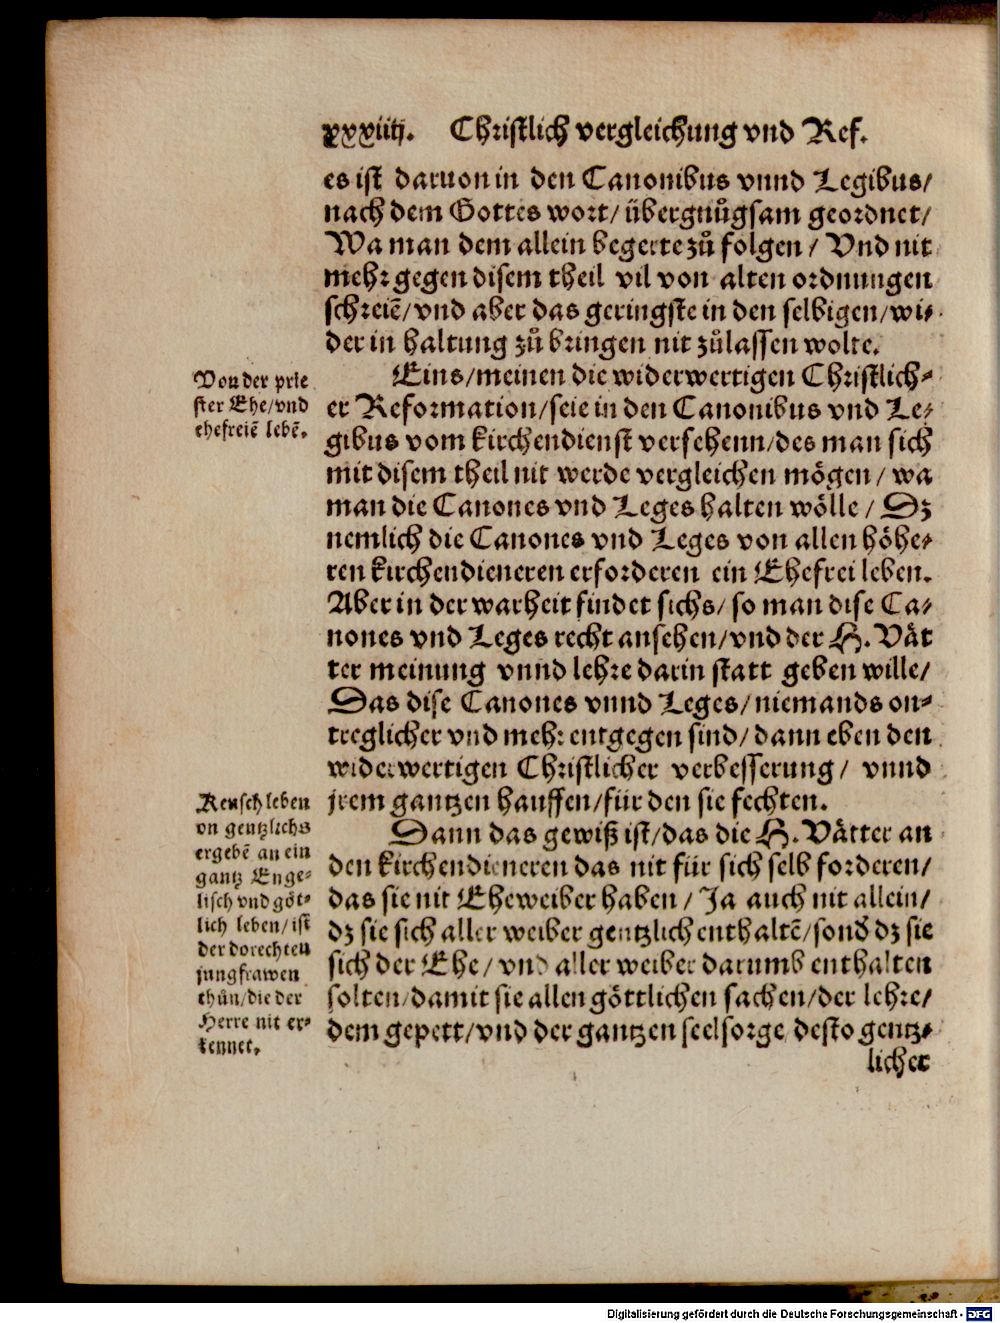 xxxiiij. Christlich vergleichung vnd Ref.
es ist daruon in den Canonibus vnnd Legibus/
nach dem Gottes wort/ übergnuͦgsam geordnet/
Wa man dem allein begerte zuͦ folgen / Vnd nit
mehr gegen disem theil vil von alten ordnungen
schreiē/ vnd aber das geringste in den selbigen/ wi⸗
der in haltung zuͦ bringen nit zuͦlassen wolte.
Von der prie
ster Ehe/ vnd
ehefreiē lebē.
Eins/ meinen die widerwertigen Christlich⸗
er Reformation/ seie in den Canonibus vnd Le⸗
gibus vom kirchendienst versehenn/ des man sich
mit disem theil nit werde vergleichen mögen/ wa
man die Canones vnd Leges halten wölle / Dz
nemlich die Canones vnd Leges von allen höhe⸗
ren kirchendieneren erforderen ein Ehefrei leben.
Aber in der warheit findet sichs/ so man dise Ca⸗
nones vnd Leges recht ansehen/ vnd der H. Vät
ter meinung vnnd lehre darin statt geben wille/
Das dise Canones vnnd Leges/ niemands on⸗
treglicher vnd mehr entgegen sind/ dann eben den
widerwertigen Christlicher verbesserung / vnnd
jrem gantzen hauffen/ für den sie fechten.
Keusch leben
vn gentzlichs
ergebē an ein
gantz Enge⸗
lisch vnd göt⸗
lich leben/ ist
der dorechten
jungfrawen
thün/ die der
Herre nit er⸗
kennet.
Dann das gewiß ist/ das die H. Vätter an
den kirchendieneren das nit für sich selb forderen/
das sie nit Eheweiber haben / Ja auch nit allein/
dz sie sich aller weiber gentzlich enthaltē/ sond' dz sie
sich der Ehe / vnd aller weiber darumb enthalten
solten/ damit sie allen göttlichen sachen/ der lehre/
dem gepett/ vnd der gantzen seelsorge, desto gentz⸗
licher
Digitalisierung gefördert durch die Deutsche Forschungsgemeinschaft - DFG